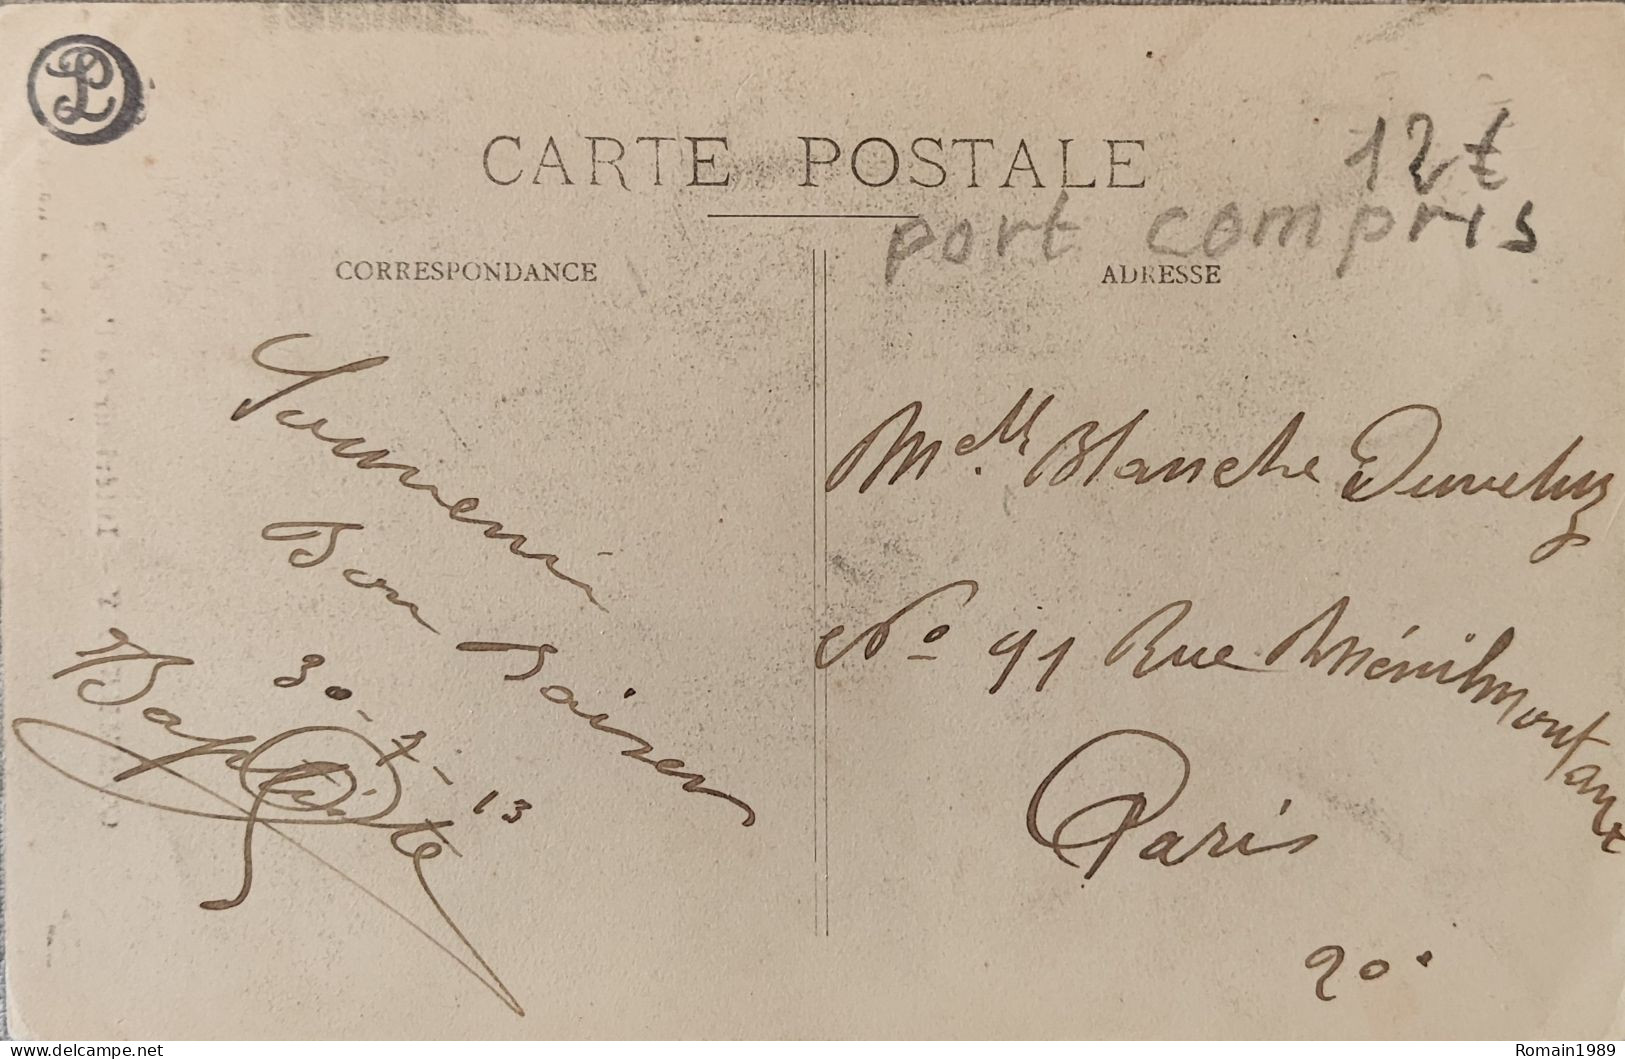 PL
CARTE POSTALE
12€
port compris
CORRESPONDANCE
ADRESSE
Souvenir
Bon Baiser
30-7-13
Baptiste
Melle Blanche
No 91 Rue Ménilmontant
Paris
20e
delcampe.net
Romain1989